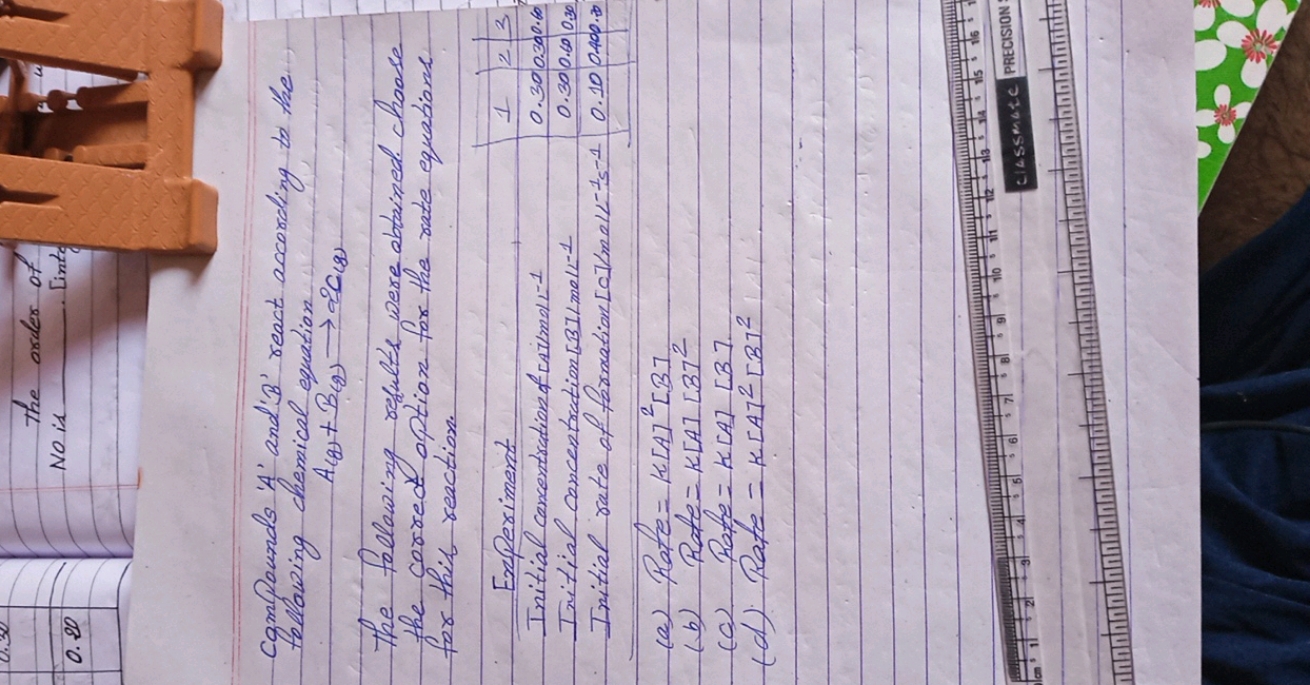 the order of
No is
0.20
compounds 'A' and 'B' react according to the
following chemical equation.
A(g) + B(g) → 2C(g)
The following results were obtained choose
the correct option for the rate equations
for this reaction.
Experiment 1 2 3
Initial concentration of [A]/mol L-1 0.30 0.30 0.60
Initial concentration [B]/mol L-1 0.30 0.60 0.30
Initial rate of formation [C]/mol L-1s-1 0.10 0.40 0.20
(a) Rate = K[A]²[B]
(b) Rate = K[A] [B]²
(c) Rate = K[A] [B]
(d) Rate = K[A]² [B]²
classmate PRECISION
cm 1 2 3 4 5 6 7 8 9 10 11 12 13 14 15 16